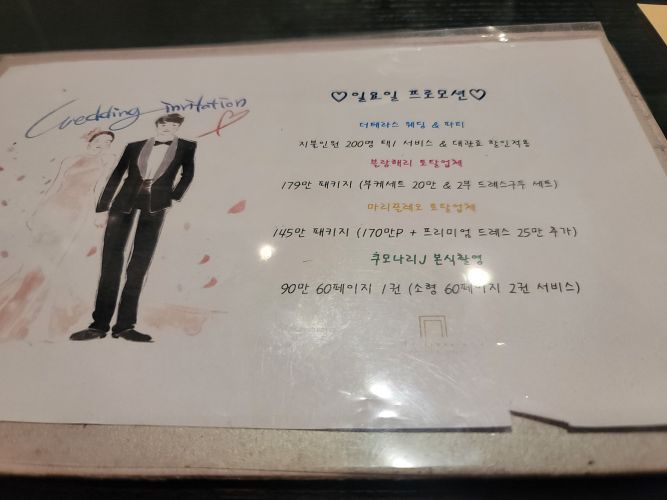 Wedding invitation
♡일요일 프로모션♡
더테라스 웨딩 & 파티
지불인원 200명 택1 서비스 & 대관료 할인적용
블랑해리 토탈업체
179만 패키지 (부케세트 20만 & 2부 드레스구두 세트)
마리끌레오 토탈업체
145만 패키지 (170만P + 프리미엄 드레스 25만 추가)
쿠모나리J 본식촬영
90만 60페이지 1권 (소형 60페이지 2권 서비스)